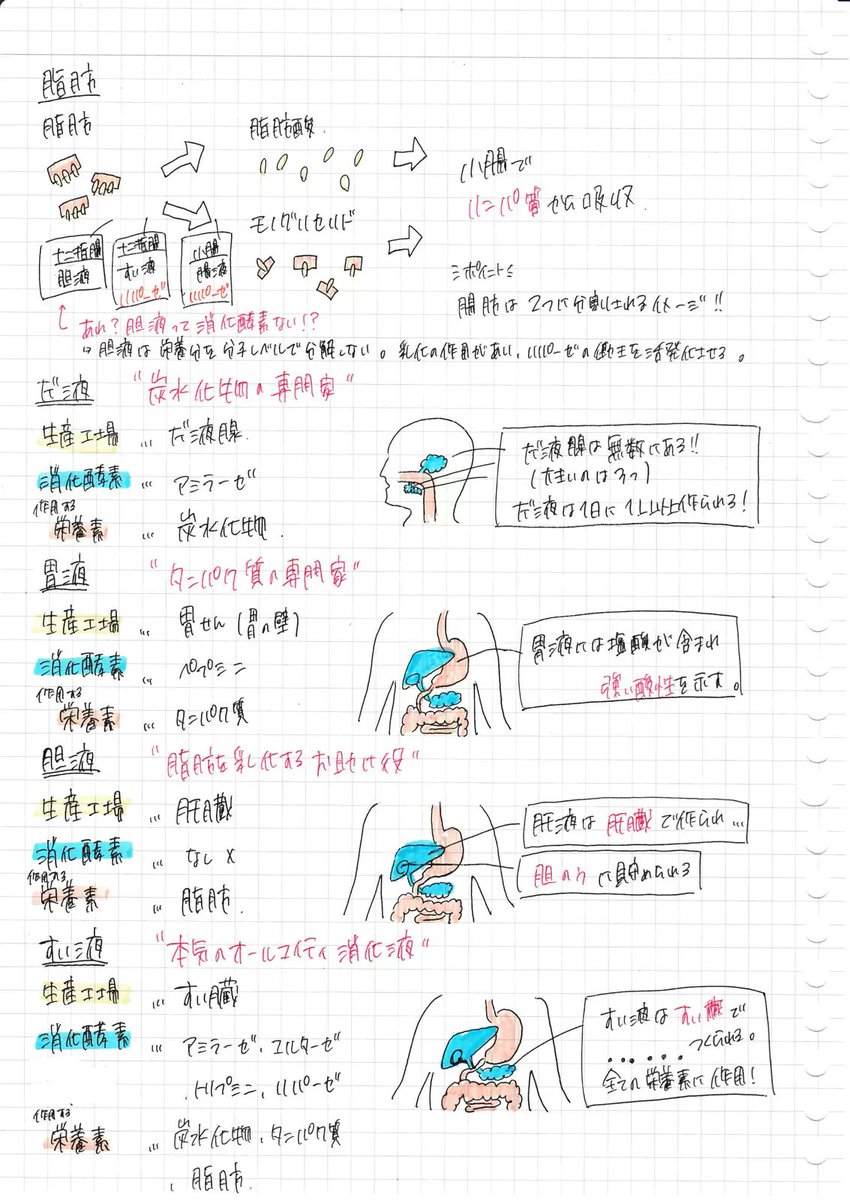 脂肪
脂肪
脂肪酸
モノグリセリド
小腸で
リンパ管から吸収
十二指腸
胆液
十二指腸
すい液
リパーゼ
小腸
腸液
リパーゼ
ミポイント
腸肪は2つに分割されるイメージ!!
あれ?胆液って消化酵素ない!?
胆液は栄養分を分子レベルで分解しない。乳化の作用があい、リパーゼの働きを活発化させる。
だ液 "炭水化物の専門家"
生産工場 … だ液腺
消化酵素 … アミラーゼ
作用する
栄養素 … 炭水化物
だ液腺は無数にある!!
(大きいのは3つ)
だ液は1日に1L以上作られる!
胃液 "タンパク質の専門家"
生産工場 … 胃せん(胃の壁)
消化酵素 … ペプシン
作用する
栄養素 … タンパク質
胃液には塩酸が含まれ
強い酸性を示す。
胆液 "脂肪を乳化するお助け役"
生産工場 … 肝臓
消化酵素 … なし×
作用する
栄養素 … 脂肪
肝液は肝臓で作られ…
胆のうに貯められる
すい液 "本気のオールマイティ消化液"
生産工場 … すい臓
消化酵素 … アミラーゼ、マルターゼ
、トリプシン、リパーゼ
作用する
栄養素 … 炭水化物、タンパク質
、脂肪
すい液はすい臓で
......つくられる。
全ての栄養素に作用!